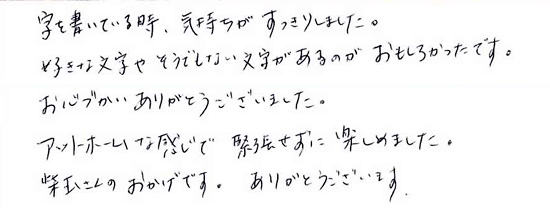 字を書いている時、気持ちがすっきりしました。
好きな文字やそうでもない文字があるのがおもしろかったです。
お心づかいありがとうございました。
アットホームな感じで緊張せずに楽しめました。
柴玉さんのおかげです。ありがとうございます.